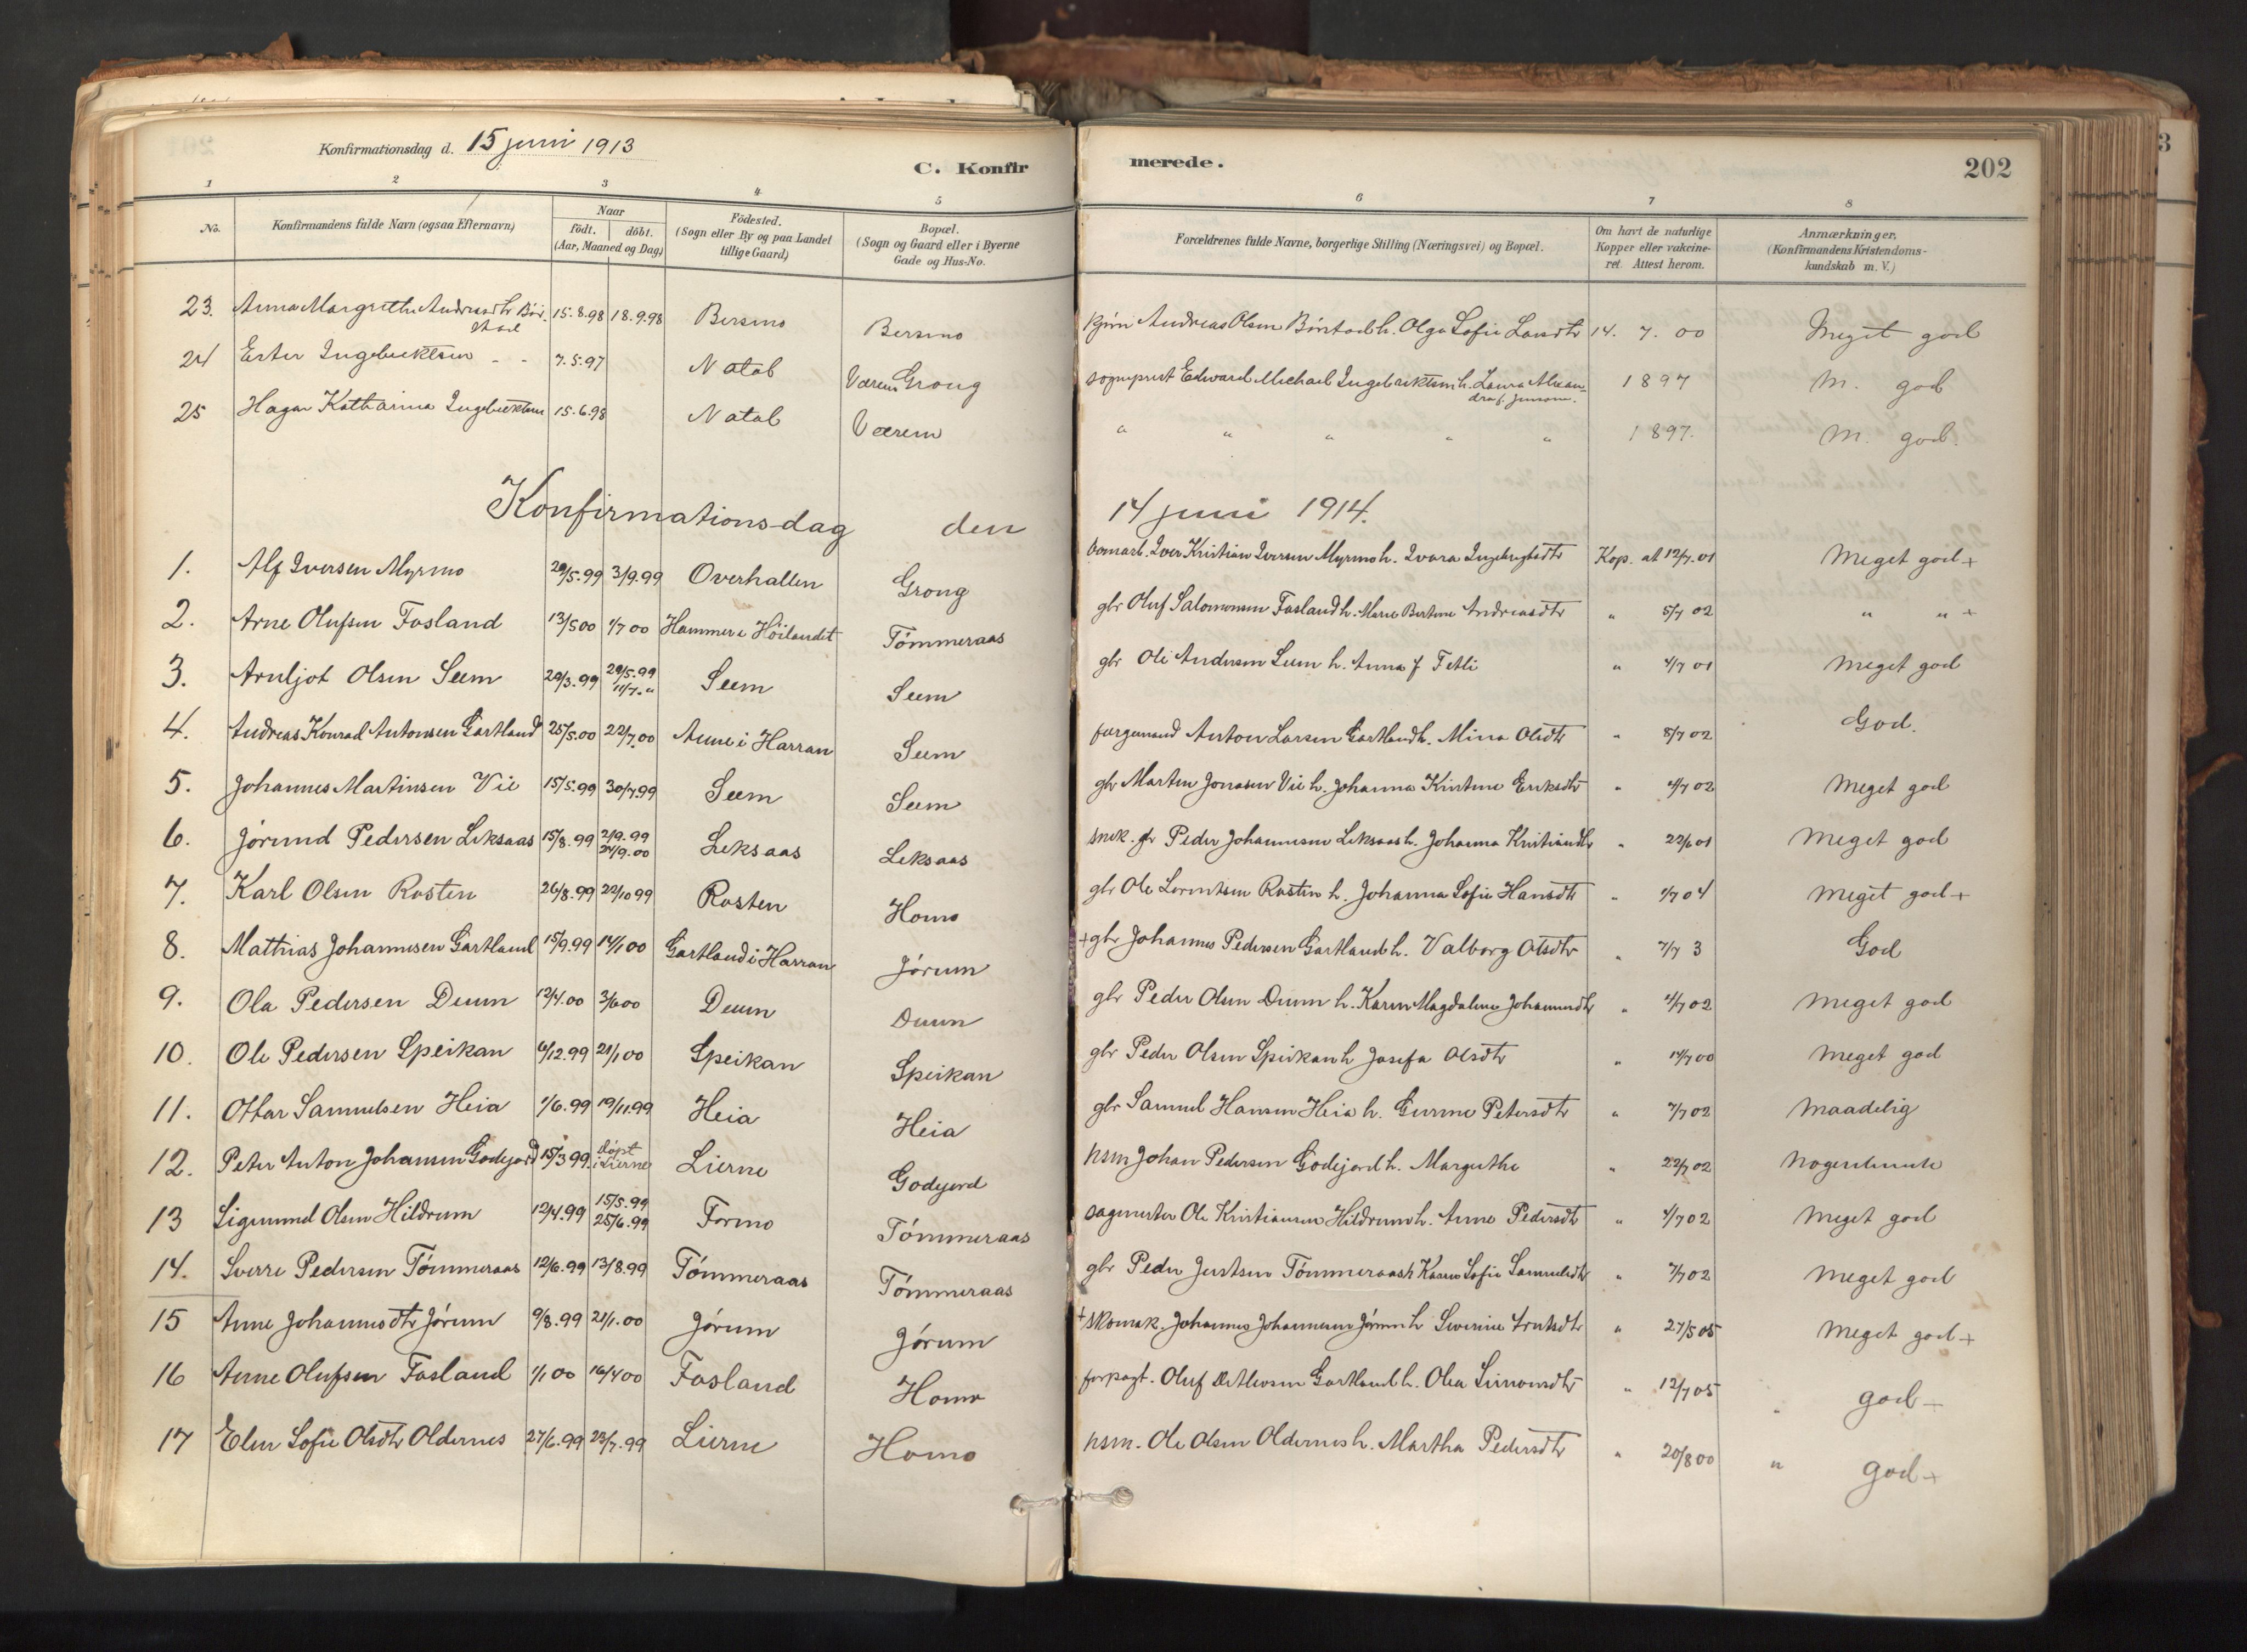 Konfirmationsdag d. 15 juni 1913
C. Konfir merede. 202
1 2 3 4 5 6 7 8
No. Konfirmandens fulde Navn (ogsaa Efternavn) Naar födt. döbt. (Aar, Maaned og Dag) Födested. (Sogn eller By og paa Landet tillige Gaard) Bopæl. (Sogn og Gaard eller i Byerne Gade og Hus-No. Forældrenes fulde Navne, borgerlige Stilling (Næringsvei) og Bopæl. Om havt de naturlige Kopper eller vakcineret. Attest herom. Anmærkninger. (Konfirmandens Kristendomskundskab m. V.)
23. Anna Margrethe Andreasdtr Börstad 15.8.98 18.9.98 Bersmo Bersmo Andreas Olsen Börstad h. Olga Sofie Larsdtr 14. 7. 00 Meget god
24 Ester Ingebrektsen - - 7.5.97 Natal Værem Grong sogneprest Edward Michael Ingebrektsen h. Laura Alexandra f. Jensen. 1897 M. god
25 Hagar Katharina Ingebrektsen 15.6.98 Natal Værem " " " " " 1897. M. god.
Konfirmations-dag den 14 juni 1914.
1. Alf Iversen Myrmo 29/5.99 3/9.99 Overhallen Grong Iver Kristian Iversen Myrmo h. Ivara Ingebrigtsdtr Kop. at 12/7.01 Meget god +
2. Arne Olufsen Fosland 13/5 00 1/7 00 Hammer i Höilandet Tömmeraas gbr Oluf Salomonsen Fosland h. Marie Bertine Andreasdtr " 5/7 02 " " +
3. Arnljot Olsen Seem 20/3.99 29/5.99 11/7. " Seem Seem gbr Ole Andersen Seem h. Anna f Tetli " 4/7 01 Meget god
4. Andreas Konrad Antonsen Gartland 25/5.00 22/7.00 Aune i Harran Seem fergemand Anton Larsen Gartland h. Mina Olsdtr " 8/7 02 God.
5. Johannes Martinsen Vie 15/5.99 30/7.99 Seem Seem gbr Martin Jonasen Vie h. Johanna Kristine Eriksdtr " 4/7 02 Meget god
6. Jörund Pedersen Leksaas 15/8.99 2/9.99 24/9.00 Leksaas Leksaas snek. gbr Peder Johannesen Leksaas h. Johanna Kristiansdtr " 22/6 01 Meget god
7. Karl Olsen Rosten 26/8.99 22/10 99 Rosten Homo gbr Ole Lorentsen Rosten h. Johanna Sofie Hansdtr " 1/7 04 Meget god +
8. Mathias Johannesen Gartland 15/9.99 14/1 00 Gartland i Harran Jörum + gbr Johannes Pedersen Gartland h. Valborg Olsdtr " 7/7 3 God
9. Ola Pedersen Duun 12/4.00 3/6 00 Duun Duun gbr Peder Olsen Duun h. Karen Magdalene Johannesdtr " 4/7 02 Meget god
10. Ole Pedersen Speikan 6/12.99 21/1 00 Speikan Speikan gbr Peder Olsen Speikan h Josefa Olsdtr " 14/7 00 Meget god
11. Ottar Samuelsen Heia 1/6.99 19/11.99 Heia Heia gbr Samuel Hansen Heia h. Gurine Petersdtr " 7/7 02 Maadelig
12. Peter Anton Johansen Godejord 15/3 99. döpt i Lierne Lierne Godejord hsm Johan Pedersen Godejord h. Margrethe " 22/7 02 Nogenlunde
13 Sigmund Olsen Hildrum 12/4.99 15/5.99 25/6.99 Formo Tömmeraas sagmester Ole Kristiansen Hildrum h. Anne Pedersdtr " 4/7 02 Meget god
14. Sverre Pedersen Tömmeraas 12/6.99 13/8.99 Tömmeraas Tömmeraas gbr Peder Justsen Tömmeraas h Karen Sofie Samuelsdtr " 7/7 02 Meget god
15 Anne Johannesdtr Jörum 9/8.99 21/1.00 Jörum Jörum + skomak. Johannes Johannesen Jörum h Severine " 27/5 05 Meget god +
16 Anne Olufsen Fosland 1/1 00 16/4 00 Fosland Homo forpagt. Oluf Gartland h. Olea Simonsdtr " 12/7 05 " god +
17 Elen Sofie Olsdtr Oldernes 27/6.99 23/7.99 Lierne Homo hsm. Ole Olsen Oldernes h. Martha Pedersdtr " 20/8 00 " god +